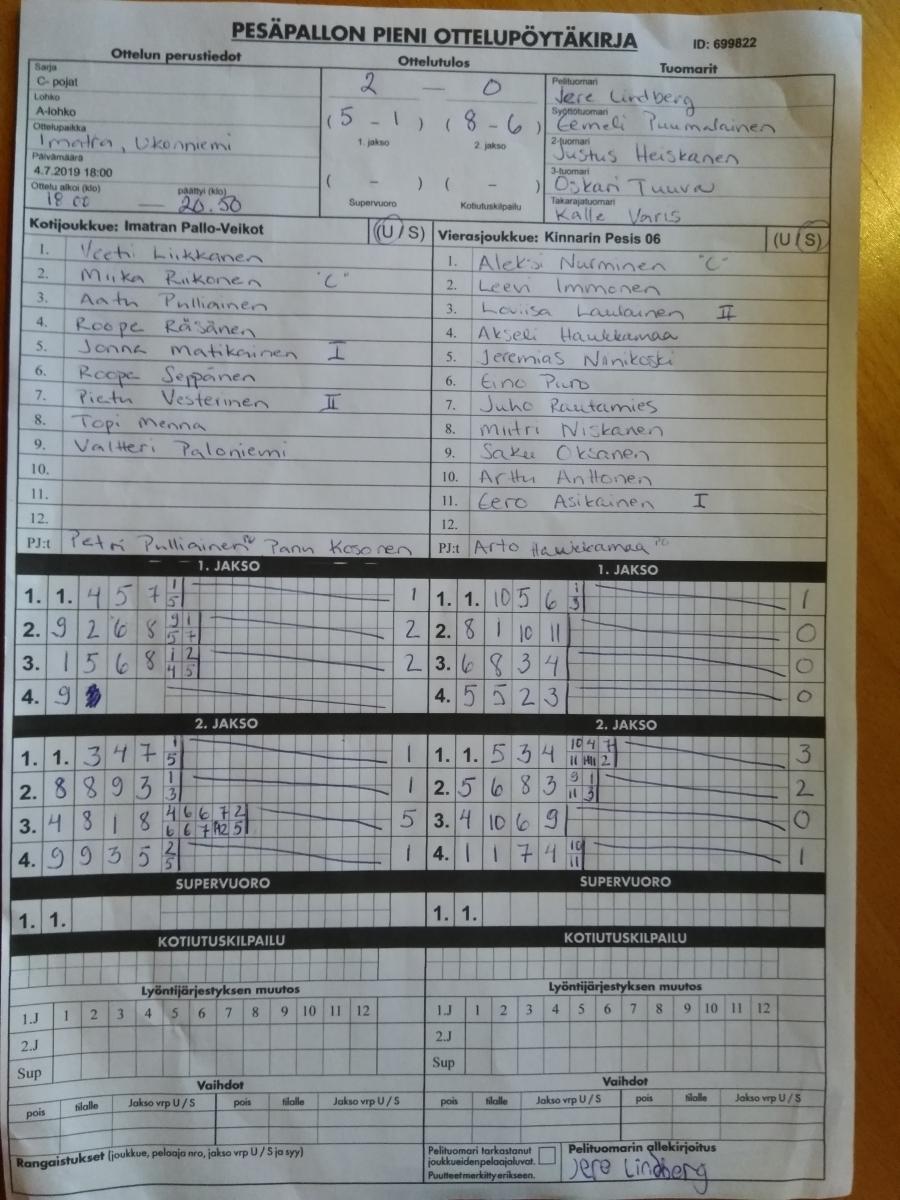 PESÄPALLON PIENI OTTELUPÖYTÄKIRJA ID: 699822
Ottelun perustiedot
Sarja
C- pojat
Lohko
A-lohko
Ottelupaikka
Imatra, Ukonniemi
Päivämäärä
4.7.2019 18:00
Ottelu alkoi (klo) päättyi (klo)
18 00 — 20.50
Ottelutulos
2 — 0
(5 - 1) (8 - 6)
1. jakso 2. jakso
( - ) ( - )
Supervuoro Kotiutuskilpailu
Tuomarit
Pelituomari
Jere Lindberg
Syöttötuomari
Eemeli Puumalainen
2-tuomari
Justus Heiskanen
3-tuomari
Oskari Tuuva
Takarajatuomari
Kalle Varis
Kotijoukkue: Imatran Pallo-Veikot (U / S)
1. Veeti Liikkanen
2. Miika Riikonen "C"
3. Aatu Pulliainen
4. Roope Räsänen
5. Jonna Matikainen I
6. Roope Seppänen
7. Pietu Vesterinen II
8. Topi Menna
9. Valtteri Paloniemi
10.
11.
12.
PJ:t Petri Pulliainen Panu Kosonen
Vierasjoukkue: Kinnarin Pesis 06 (U / S)
1. Aleksi Nurminen "C"
2. Leevi Immonen
3. Loviisa Laulainen II
4. Akseli Haukkamaa
5. Jeremias Niinikoski
6. Eino Piiro
7. Juho Rautamies
8. Miitri Niskanen
9. Saku Oksanen
10. Arttu Anttonen
11. Eero Asikainen I
12.
PJ:t Arto Haukkamaa
1. JAKSO
1. 1. 4 5 7 1 5 1
2. 9 2 6 8 9 1 5 7 2
3. 1 5 6 8 1 2 4 5 2
4. 9
1. JAKSO
1. 1. 10 5 6 1 3 1
2. 8 1 10 11 0
3. 6 8 3 4 0
4. 5 5 2 3 0
2. JAKSO
1. 1. 3 4 7 1 5 1
2. 8 8 9 3 1 3 1
3. 4 8 1 8 4 6 6 7 2 6 6 7 5 5
4. 9 9 3 5 2 5 1
2. JAKSO
1. 1. 5 3 4 10 4 7 11 2 3
2. 5 6 8 3 9 1 11 3 2
3. 4 10 6 9 0
4. 1 1 7 4 10 11 1
SUPERVUORO
1. 1.
SUPERVUORO
1. 1.
KOTIUTUSKILPAILU
KOTIUTUSKILPAILU
Lyöntijärjestyksen muutos
1.J 1 2 3 4 5 6 7 8 9 10 11 12
2.J
Sup
Lyöntijärjestyksen muutos
1.J 1 2 3 4 5 6 7 8 9 10 11 12
2.J
Sup
Vaihdot
pois tilalle Jakso vrp U / S pois tilalle Jakso vrp U / S
Vaihdot
pois tilalle Jakso vrp U / S pois tilalle Jakso vrp U / S
Rangaistukset (joukkue, pelaaja nro, jakso vrp U / S ja syy)
Pelituomari tarkastanut
joukkueidenpelaajaluvat.
Puutteet merkitty erikseen.
Pelituomarin allekirjoitus
Jere Lindberg